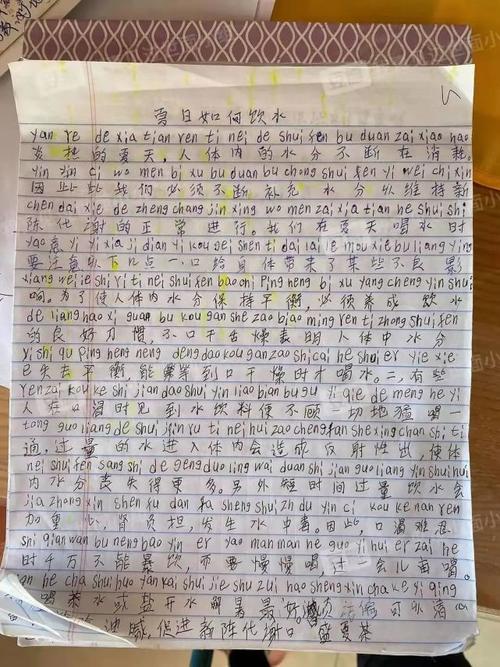 夏日如何饮水
yan re de xia tian ren ti nei de shui fen bu duan zai xiao hao
炎热的夏天,人体内的水分不断在消耗。
yin yin ci wo men bi xu bu duan bu chong shui fen yi wei chi xin
因此 我们必须不断补充水分以维持新
chen dai xie de zheng chang jin xing wo men zai xia tian he shui shi
陈代谢的正常进行。我们在夏天喝水时
yao 意 yi yi xia ji dian yi kou gei shen ti dai lai le mou xie bu liang ying
要注意以下几点一.口给身体带来了某些不良影
xiang wei le shi ri ti nei shui fen bao chi ping heng bi xu yang cheng yin shui
响。为了使人体内水分保持平衡,必须养成饮水
de liang hao xi guan bu kou gan she zao biao ming ren ti zhong shui fen
的良好习惯,不口干舌燥表明人体中水分
yi shi qu ping heng neng deng dao kou gan zao shi cai he shui er yie xie
已失去平衡,能等到口干燥时才喝水。二,有些
ren zai kou ke shi jian dao shui yin liao bian bu gu yi qie de meng he yi
人在口渴时见到水饮料便不顾一切地猛喝一
tong guo liang de shui jin ru ti nei hui zao cheng fan she xing chan shi ti
通,过量的水进入体内会造成反射性出,使体
nei shui fen sang shi de geng duo ling wai duan shi jian guo liang yin shui hui
内水分丧失得更多。另外短时间过量饮水会
jia zhong xin shen fu dan fa sheng shui zh du yin ci kou ke nan ren
加重心、肾负担,发生水中毒。因此,口渴难忍
shi qian wan bu neng bao yin er yao man man he guo yi hui er zai he
时千万不能暴饮,而要慢慢喝,过一会儿再喝。
an he cha shui huo yan kai shui jie shu zui hao shen xin cha ke yi qing
喝茶水或盐开水解暑最好。 可以清
油腻,促进新陈代谢口 盛夏茶